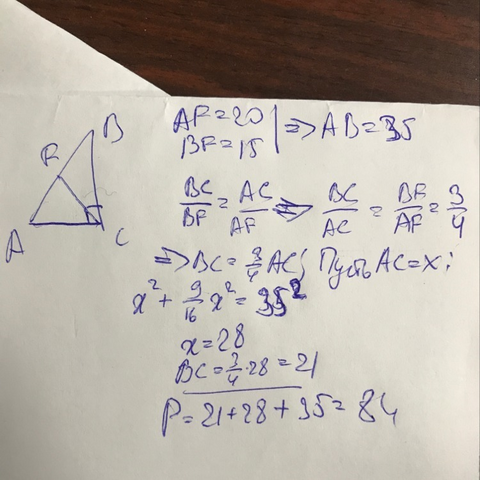 AF=20 | => AB=35
BF=15
B
F
A
C
BC/BF = AC/AF => BC/AC = BF/AF = 3/4
=> BC = 3/4 AC; Пусть AC=x:
x² + 9/16 x² = 35²
x=28
BC = 3/4 · 28 = 21
P=21+28+35=84